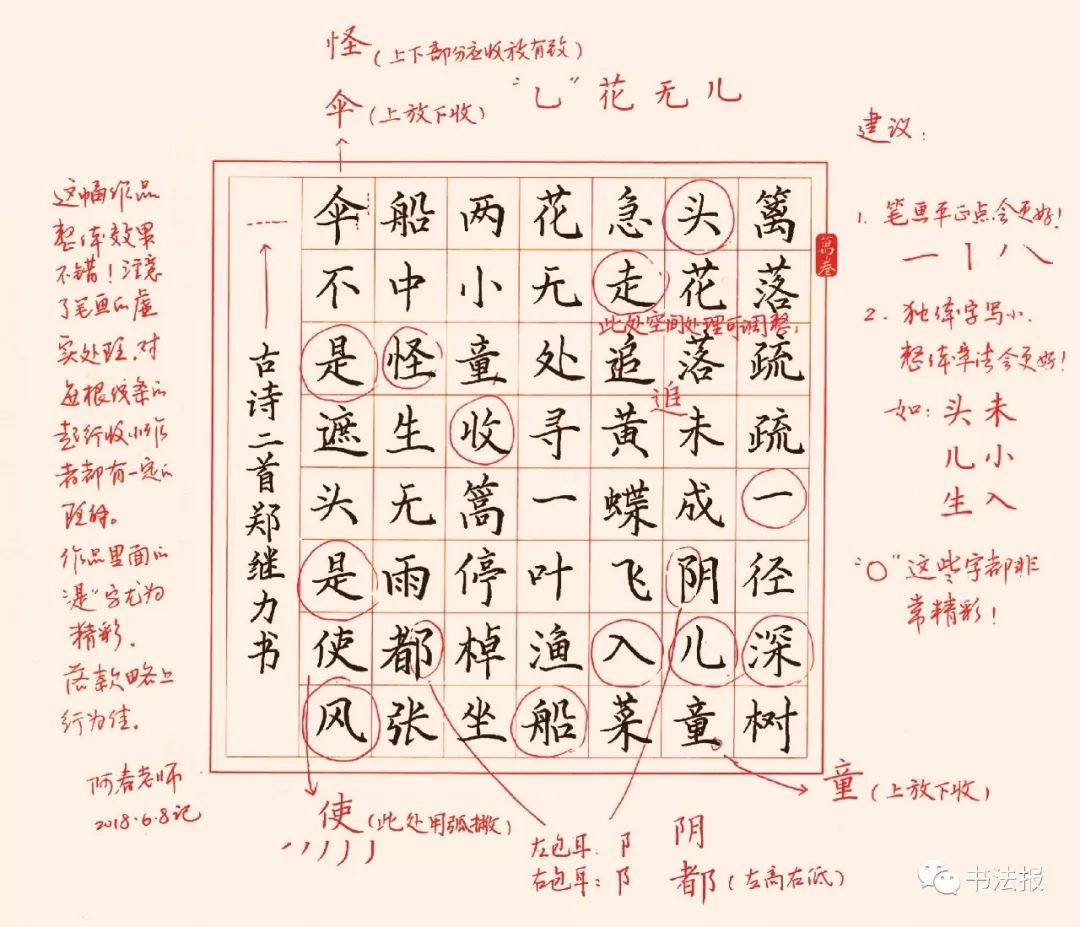 怪（上下部分应收放有致）
伞（上放下收）
“乚”花无儿
建议：
1. 笔画平正点会更好！
一丨八
2. 独体字写小.
整体章法会更好！
如：头未
儿小
生入
“○”这些字都非
常精彩！
篱叁
篱落疏疏一径深树
头花落未成阴儿童
急走追黄蝶飞入菜
花无处寻一叶渔船
两小童收篙停棹坐
船中怪生无雨都张
伞不是遮头是使风
古诗二首郑继力书
此处空间处理可调整.
追
这幅作品
整体效果
不错！注意
了笔画的虚
实处理，对
每根线条的
起行收小作
者都有一定的
理解。
作品里面的
“是”字尤为
精彩.
落款略上
行为佳.
阿春老师
2018.6.8记
使（此处用弧撇）
童（上放下收）
左包耳：阝 阴
右包耳：阝 都（左高右低）
书法报